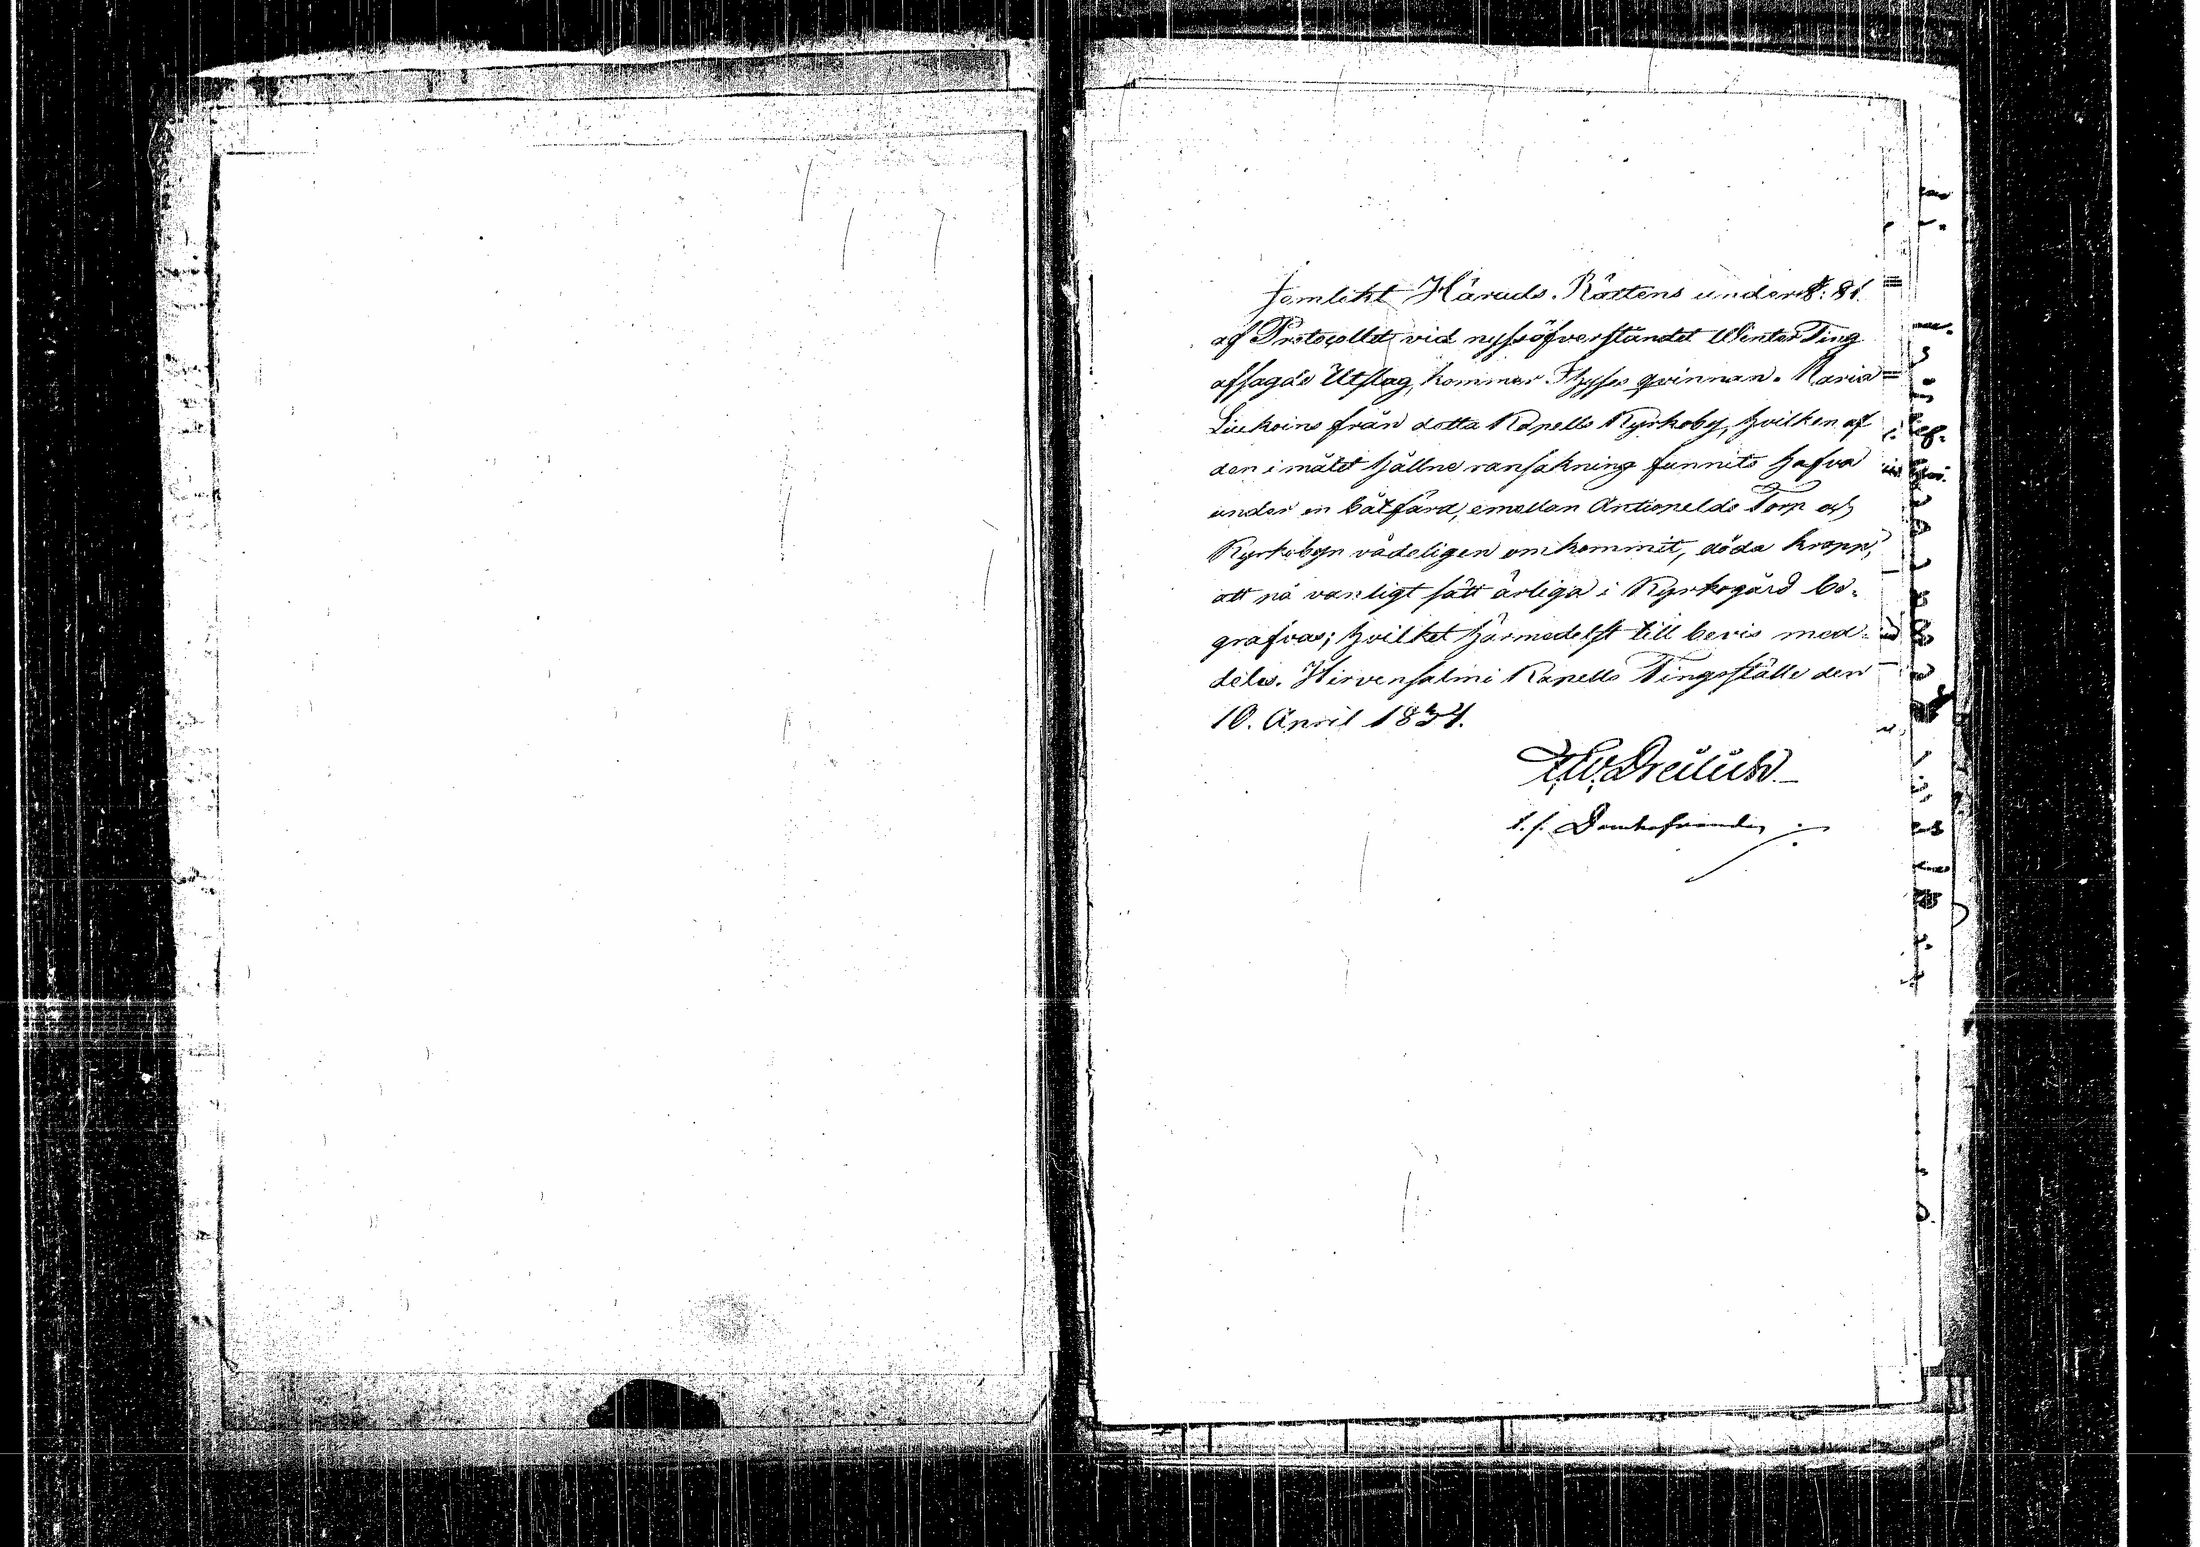 Jemlikt Härads-Rättens under §: 81.
af Protocollet vid nyssöfverståndet WinterTing
afsagde Utslag, kommer Hyses qvinnan. Maria
Liukoins från detta Kapells Kyrkoby, hvilken af
den i målet hållne ransakning funnits hafva
under en båtfärd, emellan Antionpelds Torp och
Kyrkobyn vådeligen omkommit, döda kropp,
att på vanligt sätt ärliga i Kyrkogård be-
grafvas; hvilket härmedelst till bevis med-
delas. Hirvensalmi Kapells Tingsställe den
10. April 1834.
t. f. Domhafvande